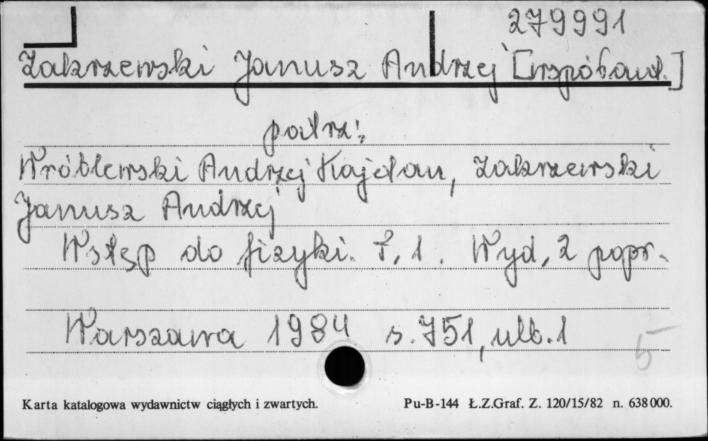 279991
Zakrzewski Janusz Andrzej [współaut.]
patrz:
Wróblewski Andrzej Kajetan, Zakrzewski
Janusz Andrzej
Wstęp do fizyki. T. 1. Wyd. 2 popr.
Warszawa 1984 s. 751, nlb. 1
5
Karta katalogowa wydawnictw ciągłych i zwartych. Pu-B-144 Ł.Z.Graf. Z. 120/15/82 n. 638000.